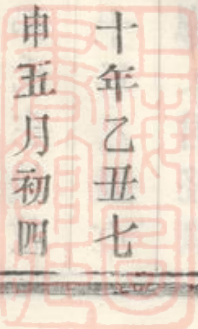 十年乙丑七
申五月初四